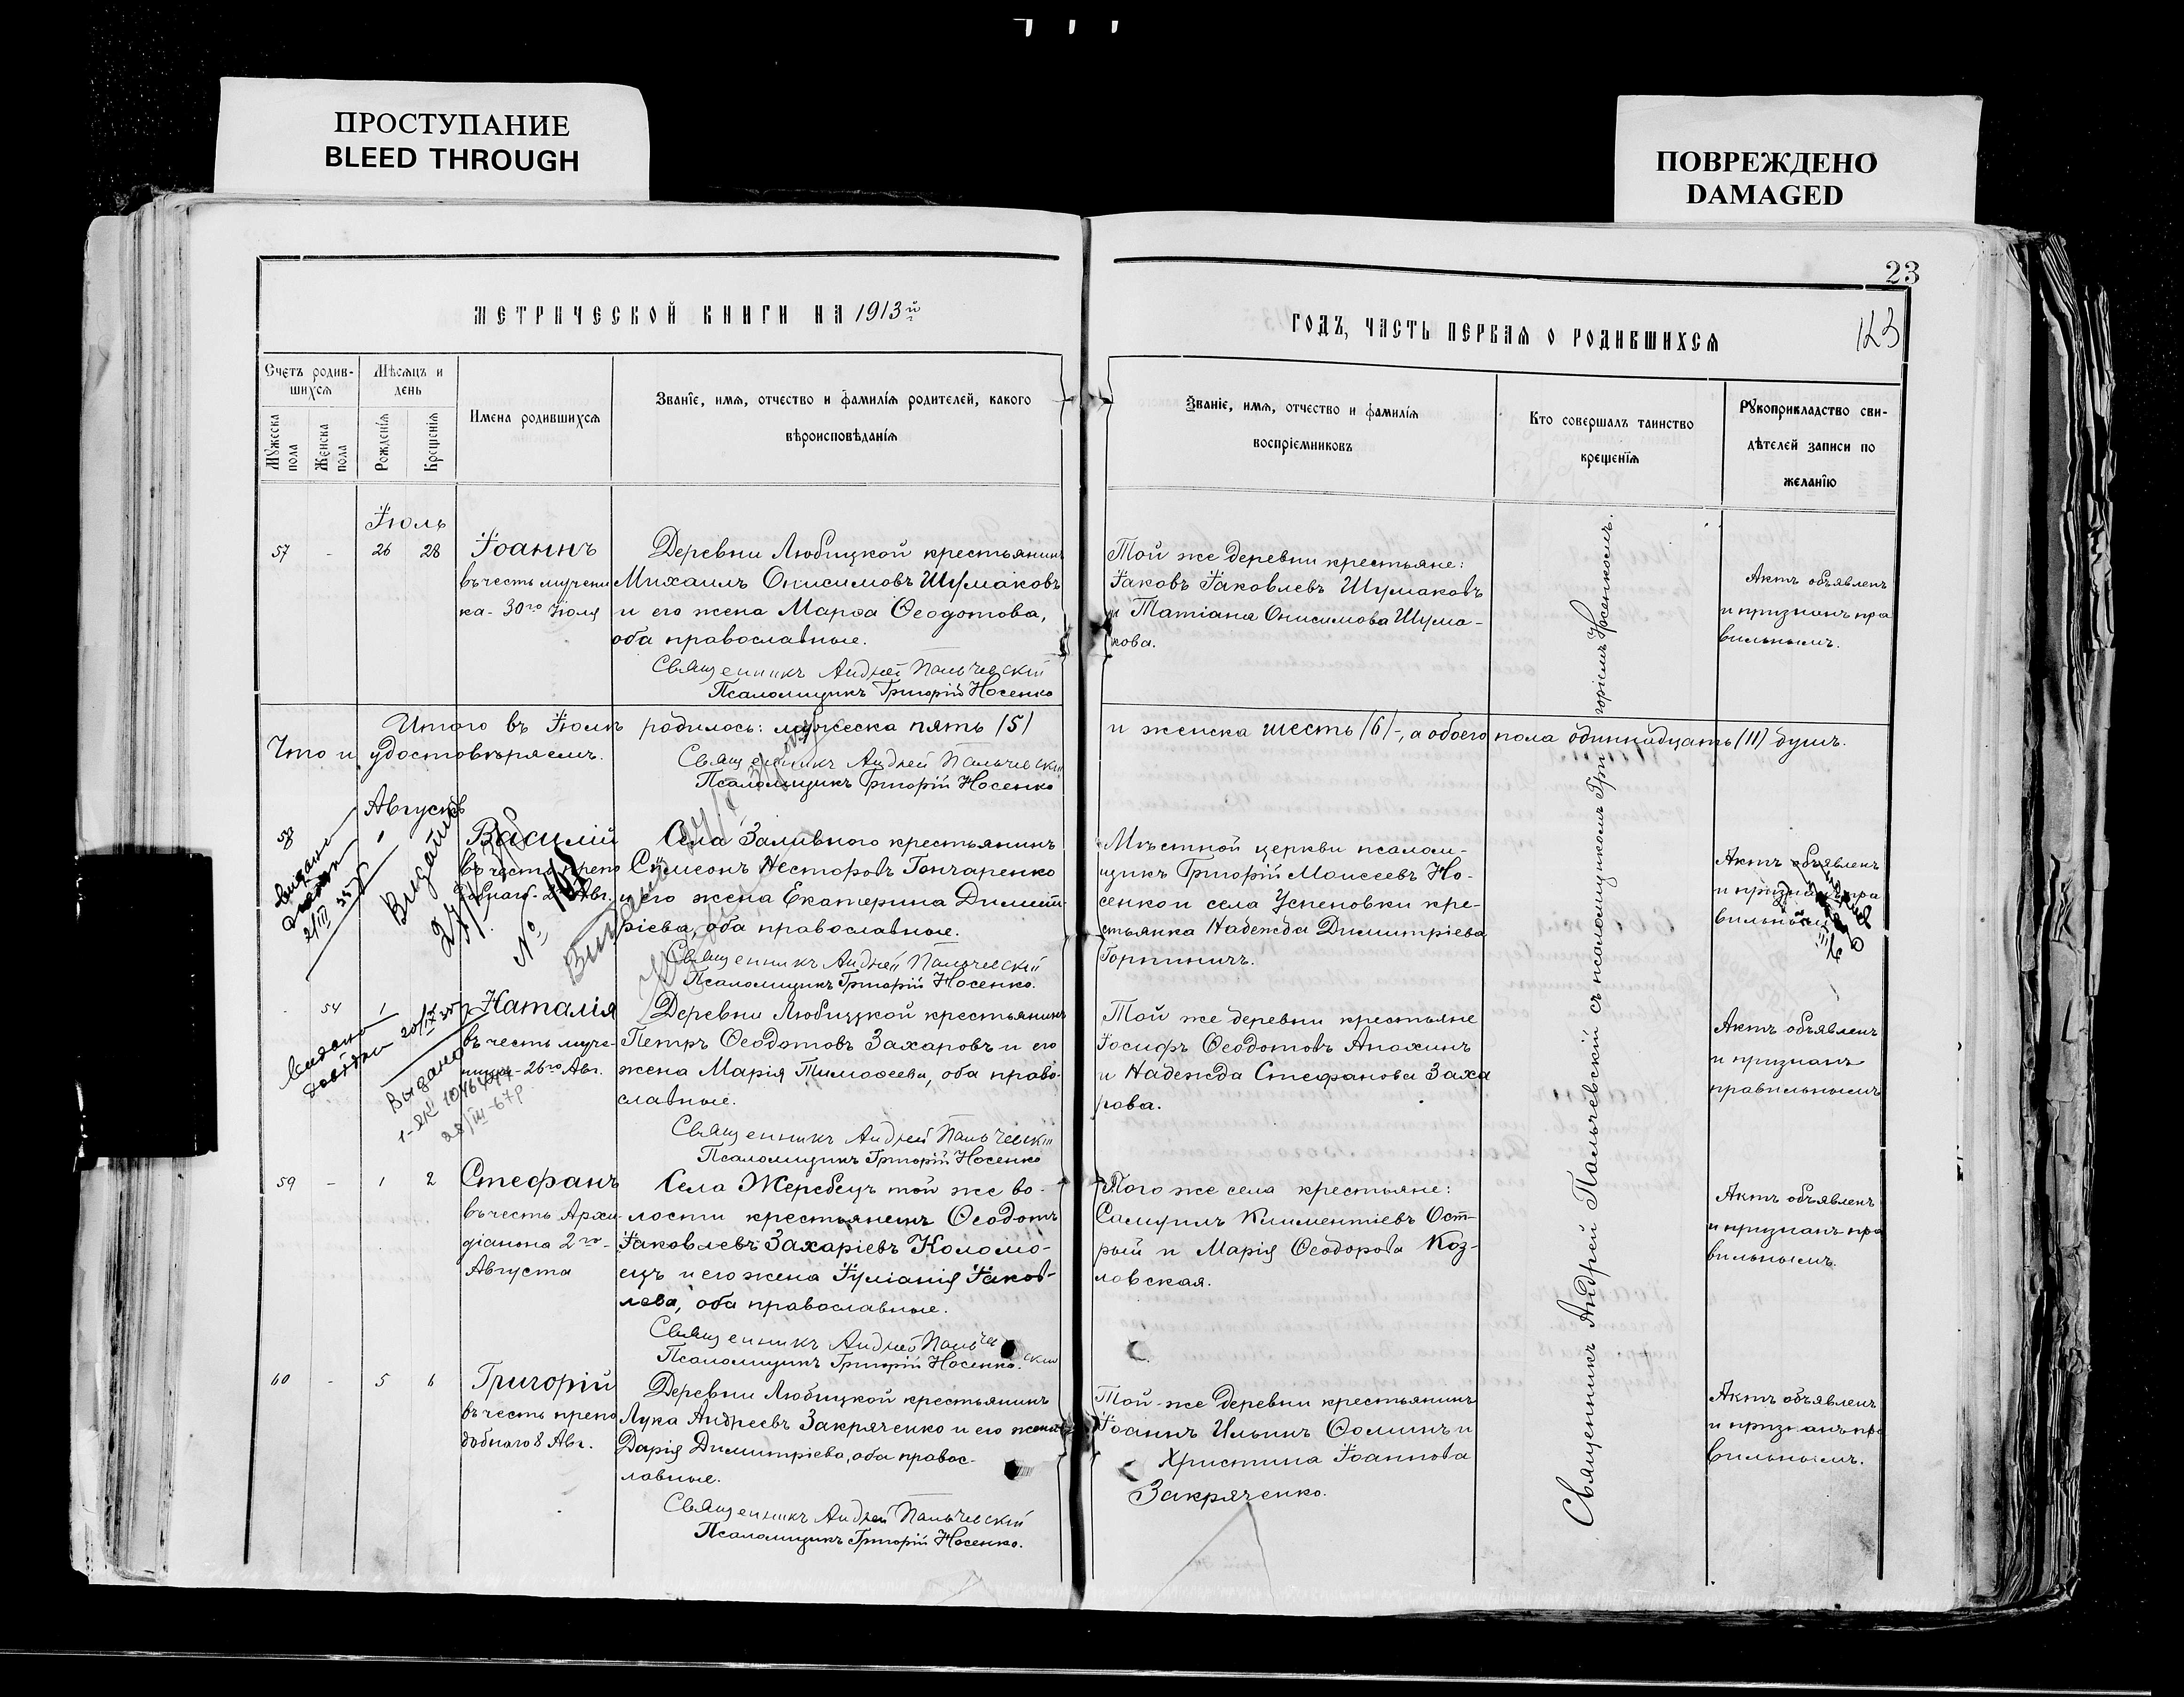 ПРОСТУПАНИЕ
BLEED THROUGH
ПОВРЕЖДЕНО
DAMAGED
23
123
МЕТРИЧЕСКОЙ КНИГИ НА 1913й
ГОДЪ, ЧАСТЬ ПЕРВАЯ О РОДИВШИХСЯ
Счетъ родив-
шихся
Мѣсяцъ и
день
Мужеска
пола
Женска
пола
Рожденія
Крещенія
Имена родившихся
Званіе, имя, отчество и фамилія родителей, какого
вѣроисповѣданія
Званіе, имя, отчество и фамилія
воспріемниковъ
Кто совершалъ таинство
крещенія
Рукоприкладство сви-
дѣтелей записи по
желанію
Іюль
57 - 26 28
Іоаннъ
въ честь мучени
ка - 30го Іюля
Деревни Любицкой крестьянинъ
Михаилъ Онисимовъ Шумаковъ
и его жена Марѳа Ѳеодотова,
оба православные.
Священникъ Андрей Пальчевскій
Псаломщикъ Григорій Носенко
Той же деревни крестьяне:
Іаковъ Іаковлевъ Шумаковъ
и Татіана Онисимова Шума-
кова.
Актъ объявленъ
и признанъ пра
вильнымъ.
Итого въ Іюлѣ родилось: мужеска пять (5)
и женска шесть (6)-, а обоего пола одиннадцать (11) душъ.
Что и удостовѣряемъ.
Священникъ Андрей Пальчевскій
Псаломщикъ Григорій Носенко
Августъ
58 1
Василій
въ честь препо
Села Заливного крестьянинъ
Симеонъ Несторовъ Гончаренко
и его жена Екатерина Димит-
ріева, оба православные.
Священникъ Андрей Пальчевскій
Псаломщикъ Григорій Носенко.
Мѣстной церкви псалом-
щикъ Григорій Моисеевъ Но-
сенко и села Успеновки кре-
стьянка Надежда Димитріева
Горпиничъ.
Актъ объявленъ
и признанъ пра
вильнымъ
Видано
довідки
2/III 35
Видано
№ 103
54 1
Наталія
въ честь муче-
ницы - 26го Авг.
Деревни Любицкой крестьянинъ
Петръ Ѳеодотовъ Захаровъ и его
жена Марія Тимоѳеева, оба право-
славные.
Священникъ Андрей Пальчевскій
Псаломщикъ Григорій Носенко
Той же деревни крестьяне
Іосифъ Ѳеодотовъ Апохинъ
и Надежда Стефанова Заха
рова.
Актъ объявленъ
и признанъ
правильнымъ
Видано
довідки
Видано
28/III-67р
59 - 1 2
Стефанъ
въ честь Архи-
діакона 2го
Августа
Села Жеребецъ той же во-
лости крестьянинъ Ѳеодотъ
Іаковлевъ Захаріевъ Коломо-
ецъ и его жена Іуліанія Іаков-
лева, оба православные.
Священникъ Андрей Пальчевскій
Псаломщикъ Григорій Носенко.
Того же села крестьяне:
Самуилъ Климентіевъ Ост-
рый и Марія Ѳеодорова Коз-
ловская.
Актъ объявленъ
и признанъ пра
вильнымъ.
60 - 5 6
Григорій
въ честь препо
добнаго 8 Авг.
Деревни Любицкой крестьянинъ
Лука Андреевъ Закряченко и его жена
Дарія Димитріева, оба правос-
лавные.
Священникъ Андрей Пальчевскій
Псаломщикъ Григорій Носенко.
Той-же деревни крестьянинъ
Іоаннъ Ильинъ Ѳоминъ и
Христина Іоаннова
Закряченко.
Актъ объявленъ
и признанъ пра
вильнымъ.
Священникъ Андрей Пальчевскій съ псаломщикомъ Григоріемъ Носенкомъ.